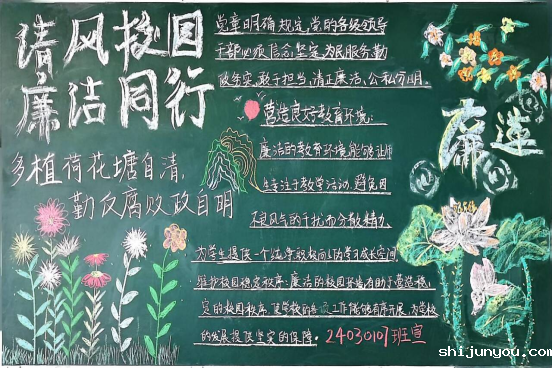 清风校园
廉洁同行
多植荷花塘自清,
勤反腐败政自明
党章明确规定,党的各级领导
干部必须信念坚定、为民服务、勤
政务实、敢于担当、清正廉洁、公私分明.
营造良好教育环境:
廉洁的教育环境能够让师
生专注于教学活动,避免因
不良风气的干扰而分散精力
为学生提供一个纯净积极向上的学习成长空间
维护校园稳定秩序:廉洁的校园环境有助于营造稳
定的校园秩序,使学校的各项工作能够有序开展,为学校
的发展提供坚实的保障。24030107班宣
廉莲
shijunyou.com